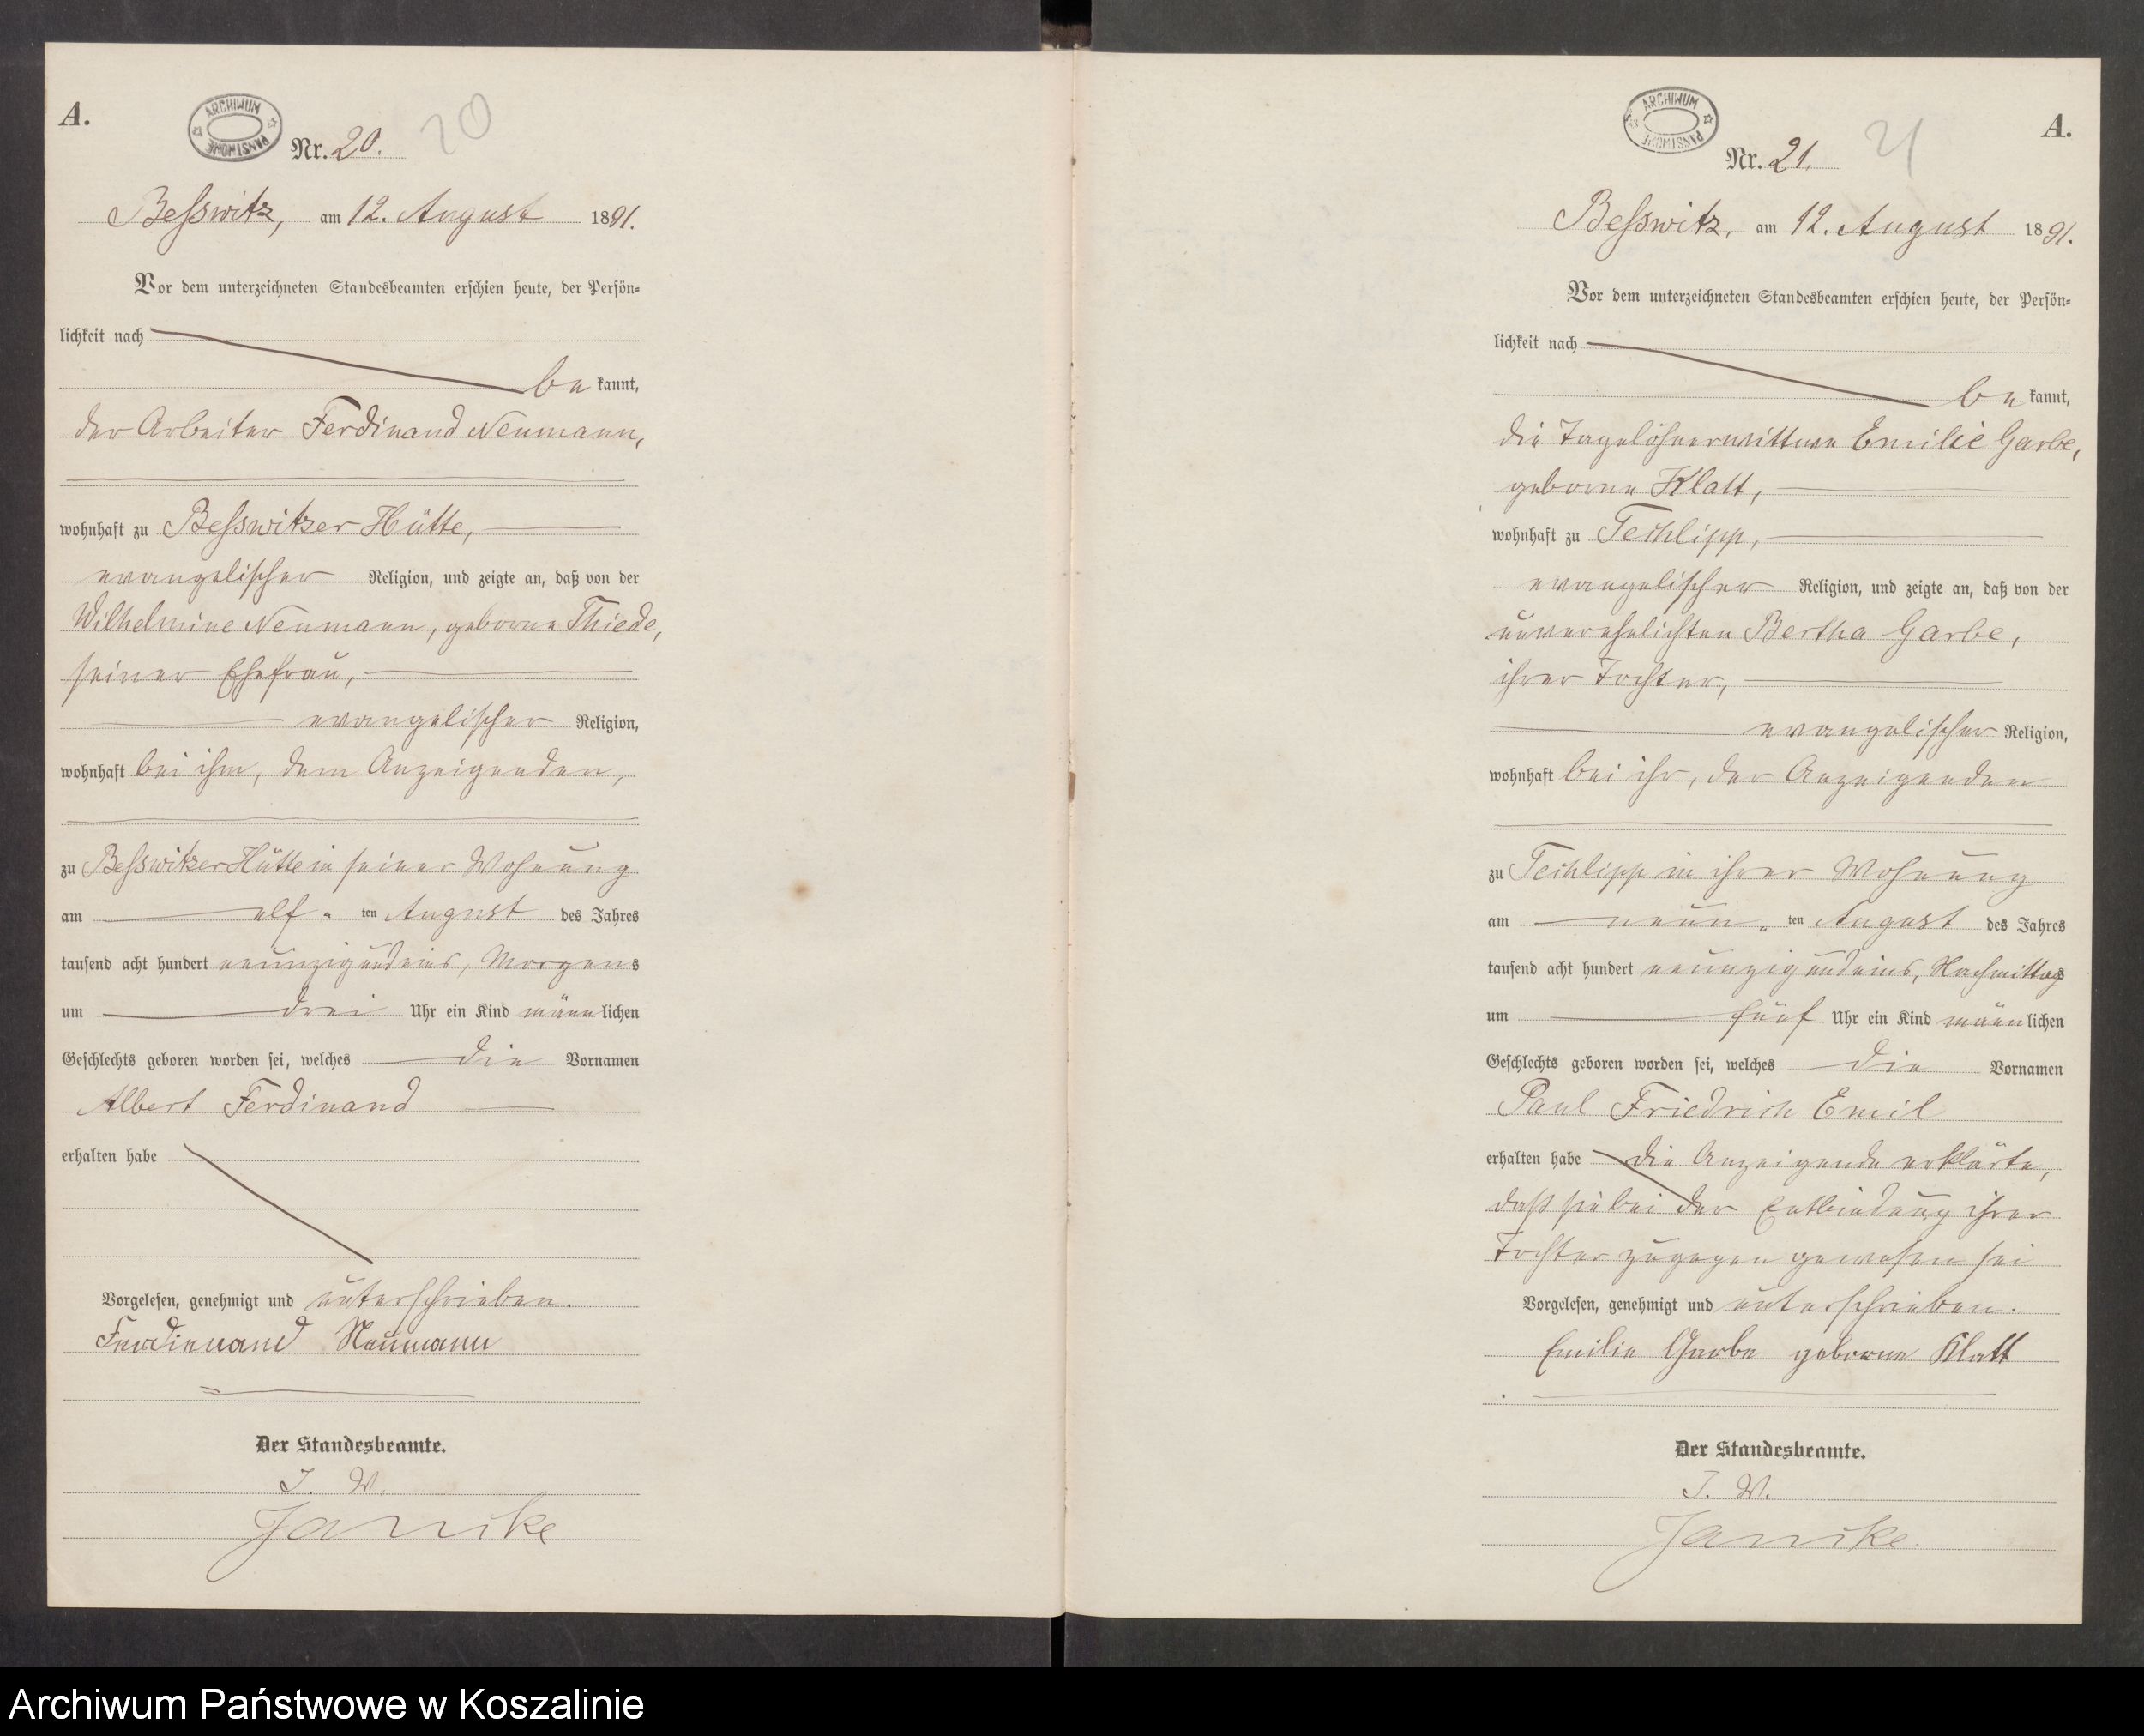 A.
ARCHIWUM PAŃSTWOWE
Nr. 20.
20
Besswitz, am 12. August 1891.
Vor dem unterzeichneten Standesbeamten erschien heute, der Persön-
lichkeit nach
be kannt,
der Arbeiter Ferdinand Neumann,
wohnhaft zu Besswitzer Hütte,
evangelischer Religion, und zeigte an, daß von der
Wilhelmine Neumann, geborne Thiede,
seiner Ehefrau,
evangelischer Religion,
wohnhaft bei ihm, dem Anzeigenden,
zu Besswitzer Hütte in seiner Wohnung
am elf. ten August des Jahres
tausend acht hundert neunzigundeins, Morgens
um drei Uhr ein Kind männlichen
Geschlechts geboren worden sei, welches die Vornamen
Albert Ferdinand
erhalten habe
Vorgelesen, genehmigt und unterschrieben.
Ferdinand Neumann
Der Standesbeamte.
I. V.
Janike
A.
ARCHIWUM PAŃSTWOWE
Nr. 21.
21
Besswitz, am 12. August 1891.
Vor dem unterzeichneten Standesbeamten erschien heute, der Persön-
lichkeit nach
be kannt,
die Tagelöhnerwittwe Emilie Garbe,
geborne Klatt,
wohnhaft zu Techlipp,
evangelischer Religion, und zeigte an, daß von der
unverehelichten Bertha Garbe,
ihrer Tochter,
evangelischer Religion,
wohnhaft bei ihr, der Anzeigenden
zu Techlipp in ihrer Wohnung
am neun. ten August des Jahres
tausend acht hundert neunzigundeins, Nachmittags
um fünf Uhr ein Kind männlichen
Geschlechts geboren worden sei, welches die Vornamen
Paul Friedrich Emil
erhalten habe die Anzeigende erklärte,
daß sie bei der Entbindung ihrer
Tochter zugegen gewesen sei
Vorgelesen, genehmigt und unterschrieben.
Emilie Garbe geborne Klatt
Der Standesbeamte.
I. V.
Janike.
Archiwum Państwowe w Koszalinie